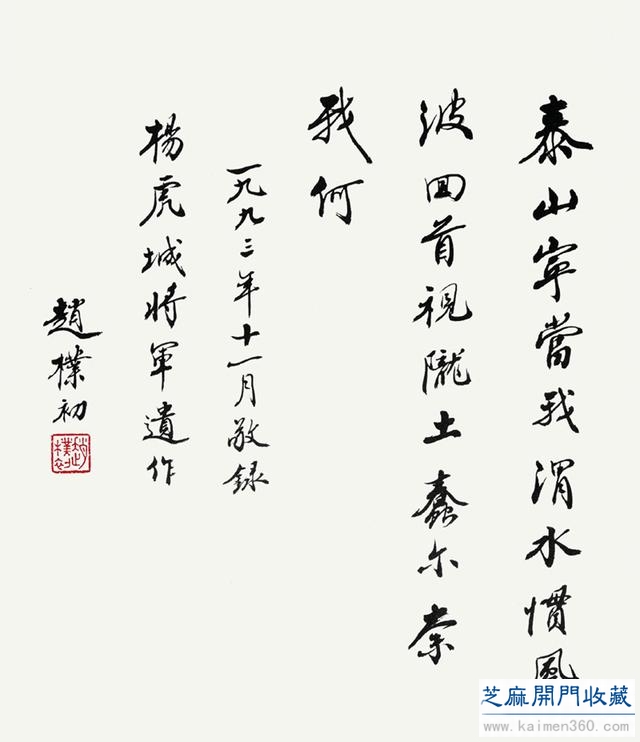 泰山寧當我渭水慣風
波回首視隴土蠢尔奈
我何
一九九三年十一月敬录
楊虎城將軍遺作
趙樸初
趙樸初
芝麻開門收藏
www.kaimen360.com